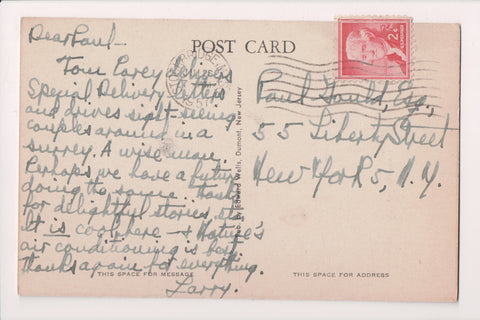 Dear Paul -
POST CARD
2¢
Tom Carey
Special Delivery letters
and drives sight-seeing
couples around in a
surrey. A wise man.
Perhaps we have a future
doing the same. Thanks
for delightful stories, etc.
It is cool here - & Nature's
air conditioning is best
thanks again for everything.
Larry.
THIS SPACE FOR MESSAGE
Edward Wells, Dumont, New Jersey
Paul Gould, Esq.,
55 Liberty Street
New York 5, N.Y.
THIS SPACE FOR ADDRESS